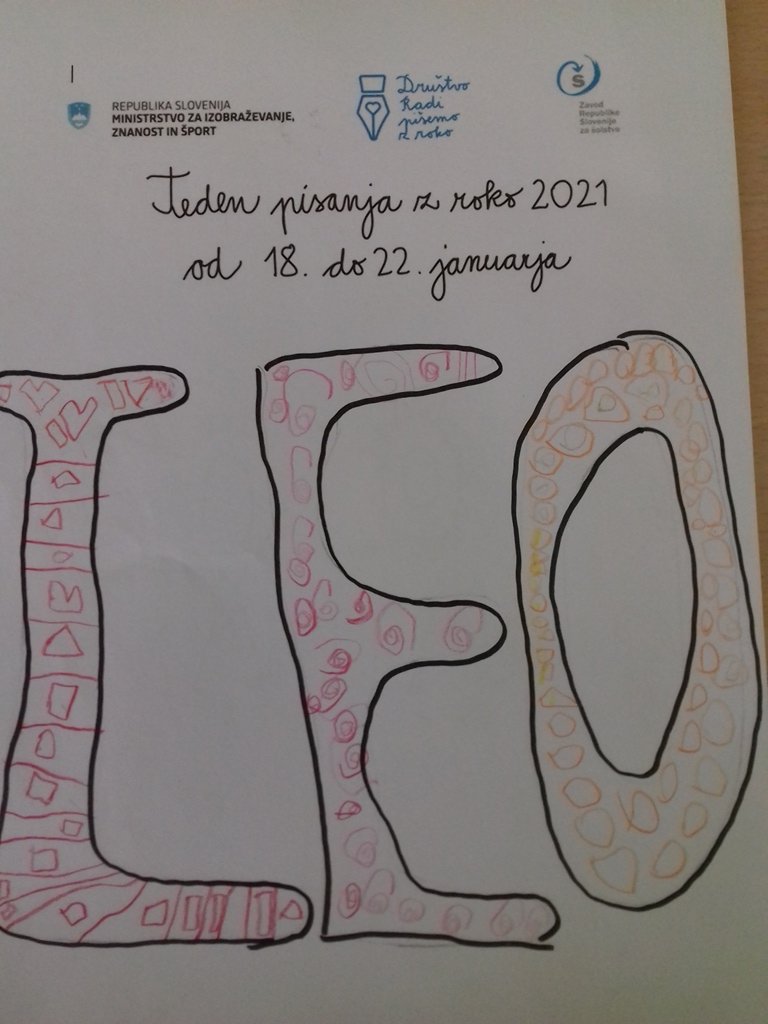 REPUBLIKA SLOVENIJA
MINISTRSTVO ZA IZOBRAŽEVANJE,
ZNANOST IN ŠPORT
Društvo
Radi
pišemo
z roko
Š
Zavod
Republike
Slovenije
za šolstvo
Teden pisanja z roko 2021
od 18. do 22. januarja
LEO